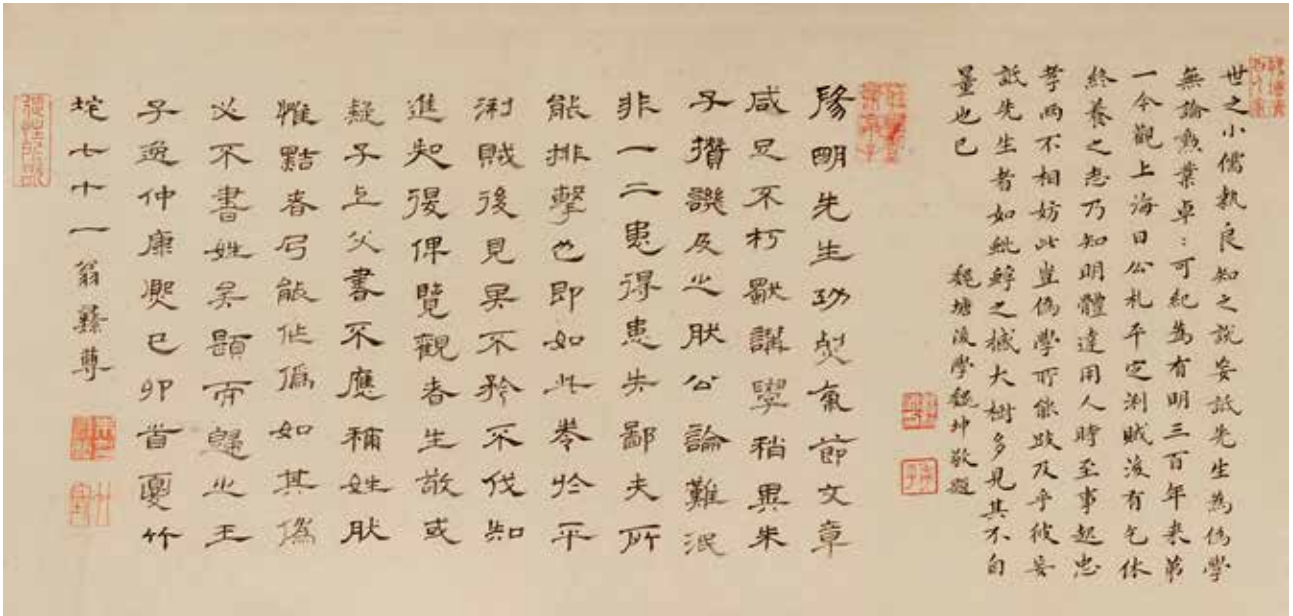 世之小儒執良知之說妄詆先生為偽學
無論勲業卓〻可紀為有明三百年來第
一今觀上海日公札平定浰賊後有乞休
終養之志乃知明體達用人時至事起忠
孝兩不相妨此豈偽學所能跂及乎彼妄
詆先生者如蚍蜉之撼大樹多見其不自
量也已
魏塘後學魏坤敬題
陽明先生功烈氣節文章
咸足不朽獸講學稍異朱
子攢譏及之然公論難泯
非一二患得患失鄙夫所
能排擊也即如此卷於平
浰賊後見果不矜不伐知
進知復俾覽觀者生敬或
疑子上父書不應稱姓然
惟黠者乃能作偽如其偽
必不書姓矣題而歸之王
子遜仲康熙己卯首夏竹
垞七十一翁彝尊